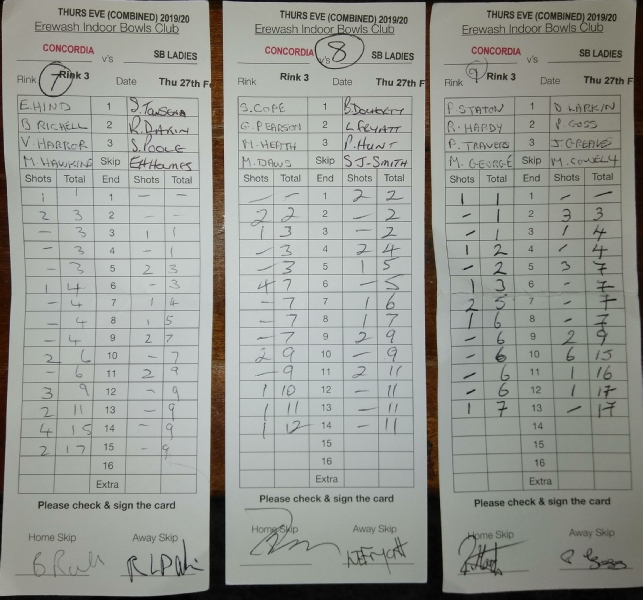 THURS EVE (COMBINED) 2019/20
Erewash Indoor Bowls Club
CONCORDIA v's SB LADIES
Rink 7 Rink 3 Date Thu 27th F
E.HIND 1
B RICHELL 2 R.DAKIN
V HARROR 3 S.POOLE
M HAWKINS Skip
Shots Total End Shots Total
1 1 1 - -
2 3 2 - -
- 3 3 1 1
- 3 4 - 1
- 3 5 2 3
1 4 6 - 3
- 4 7 1 4
- 4 8 1 5
- 4 9 2 7
2 6 10 - 7
- 6 11 2 9
3 9 12 - 9
2 11 13 - 9
4 15 14 - 9
2 17 15 - 9
16
Extra
Please check & sign the card
Home Skip Away Skip
THURS EVE (COMBINED) 2019/20
Erewash Indoor Bowls Club
CONCORDIA v's 8 SB LADIES
Rink Rink 3 Date Thu 27th Fe
S.COPE 1 B.DOHERTY
G.PEARSON 2 L FRYATT
M.HEATH 3 P.HUNT
M.DAWS Skip S J-SMITH
Shots Total End Shots Total
- - 1 2 2
2 2 2 - 2
1 3 3 - 2
- 3 4 2 4
- 3 5 1 5
4 7 6 - 5
- 7 7 1 6
- 7 8 1 7
- 7 9 2 9
2 9 10 - 9
- 9 11 2 11
1 10 12 - 11
1 11 13 - 11
1 12 14 - 11
15
16
Extra
Please check & sign the card
Home Skip Away Skip
THURS EVE (COMBINED) 2019/20
Erewash Indoor Bowls Club
CONCORDIA v's SB LADIES
Rink 9 Rink 3 Date Thu 27th F
P.STATON 1 D LARKIN
R.HARDY 2 P GOSS
P.TRAVERS 3 J GREAVES
M.GEORGE Skip
Shots Total End Shots Total
1 1 1 - -
- 1 2 3 3
- 1 3 1 4
1 2 4 - 4
- 2 5 3 7
1 3 6 - 7
2 5 7 - 7
1 6 8 - 7
- 6 9 2 9
- 6 10 6 15
- 6 11 1 16
- 6 12 1 17
1 7 13 - 17
14
15
16
Extra
Please check & sign the card
Home Skip Away Skip